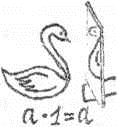 a · 1 = a